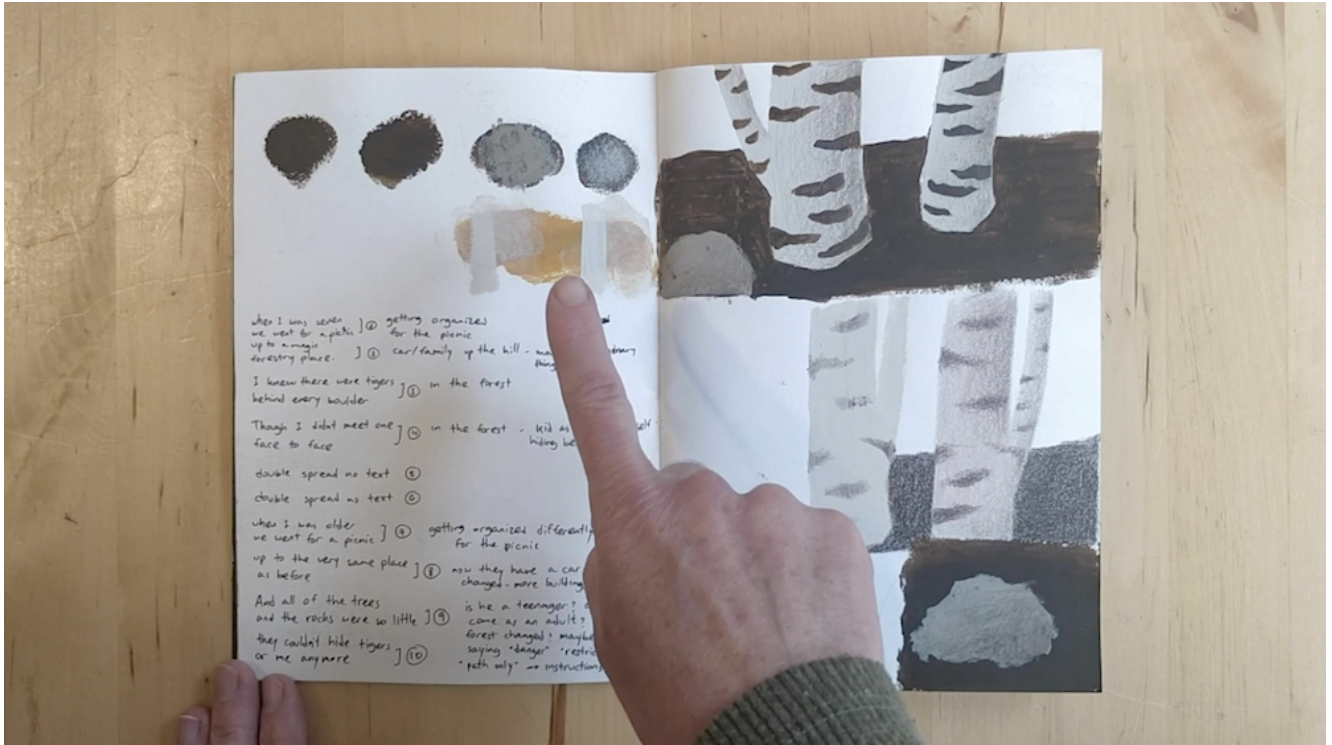 when I was seven
we went for a picnic ] ① getting organized
for the picnic
up to a magic
forestry place. ] ② car/family up the hill - 
thing
I knew there were tigers
behind every boulder ] ③ in the forest
Though I didnt meet one
face to face ] ④ in the forest - kid as
hiding
double spread no text ⑤
double spread no text ⑥
when I was older
we went for a picnic ] ⑦ getting organized differently
for the picnic
up to the very same place
as before ] ⑧ now they have a car
changed - more building
And all of the trees
and the rocks were so little ] ⑨ is he a teenager?
came as an adult?
forest changed? maybe
they couldn't hide tigers
or me anymore ] ⑩ saying "danger"
"path only" → instructions